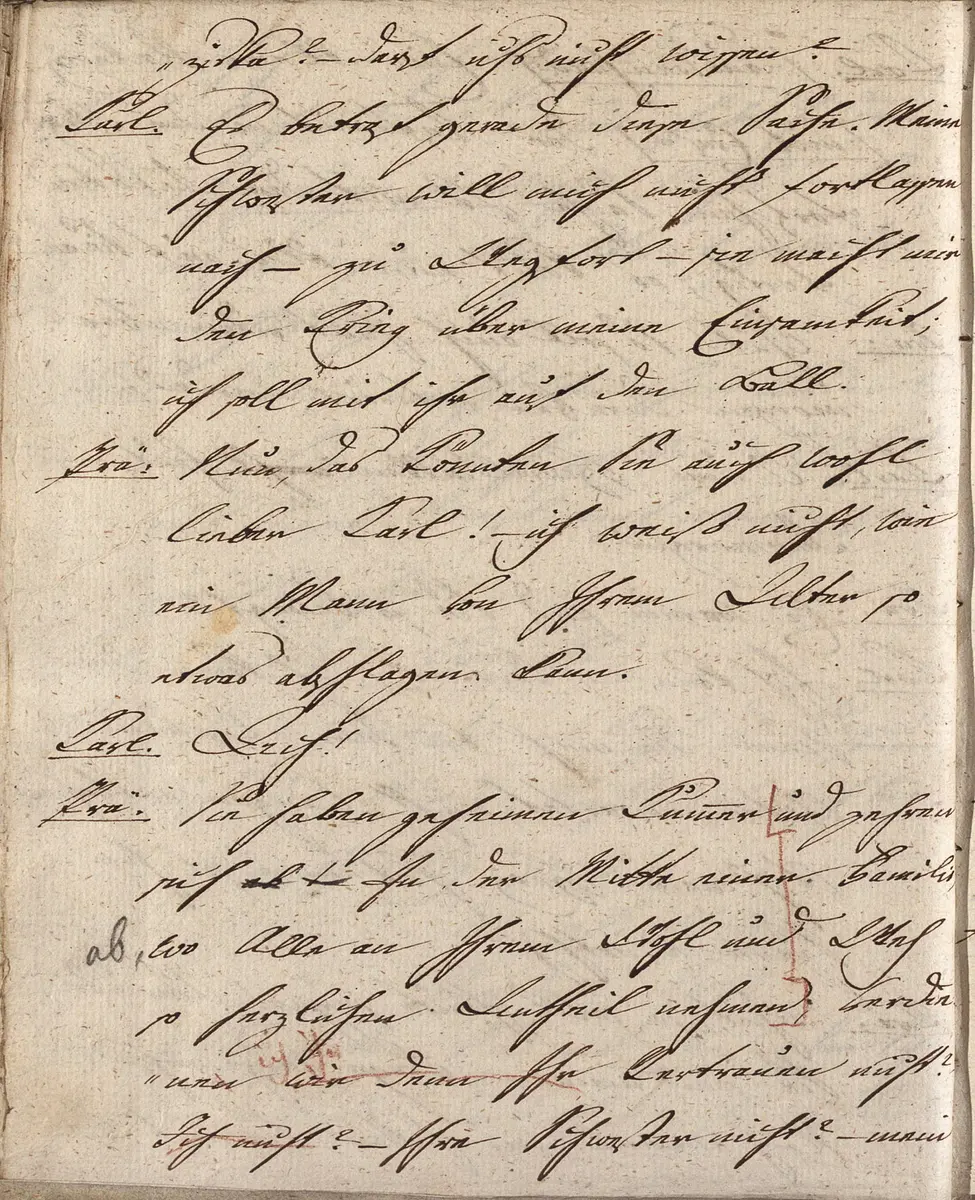 „zirka? – darf ichs nicht wissen?
Carl. Es betraf gerade diese Sache. Meine
Schwester will mich nicht fortlassen
nach – zu – sie macht mir
den Krieg über meine Einsamkeit;
ich soll mit ihr auf den Ball.
Prä: Nun, das könnten Sie auch wohl
lieber Carl! – ich weiß nicht, wie
ein Mann von Ihrem Alter so
etwas abschlagen kann.
Carl. Ach!
Prä: Sie haben geheimen Kummer und zehren
sich ab! In der Mitte einer Famili
ab, wo Alle an Ihrem Wohl und Weh
so herzlichen Antheil nehmen? verdie
„nen wir denn Ihr Vertrauen nicht?
Ich nicht? – Ihre Schwester nicht? – mein